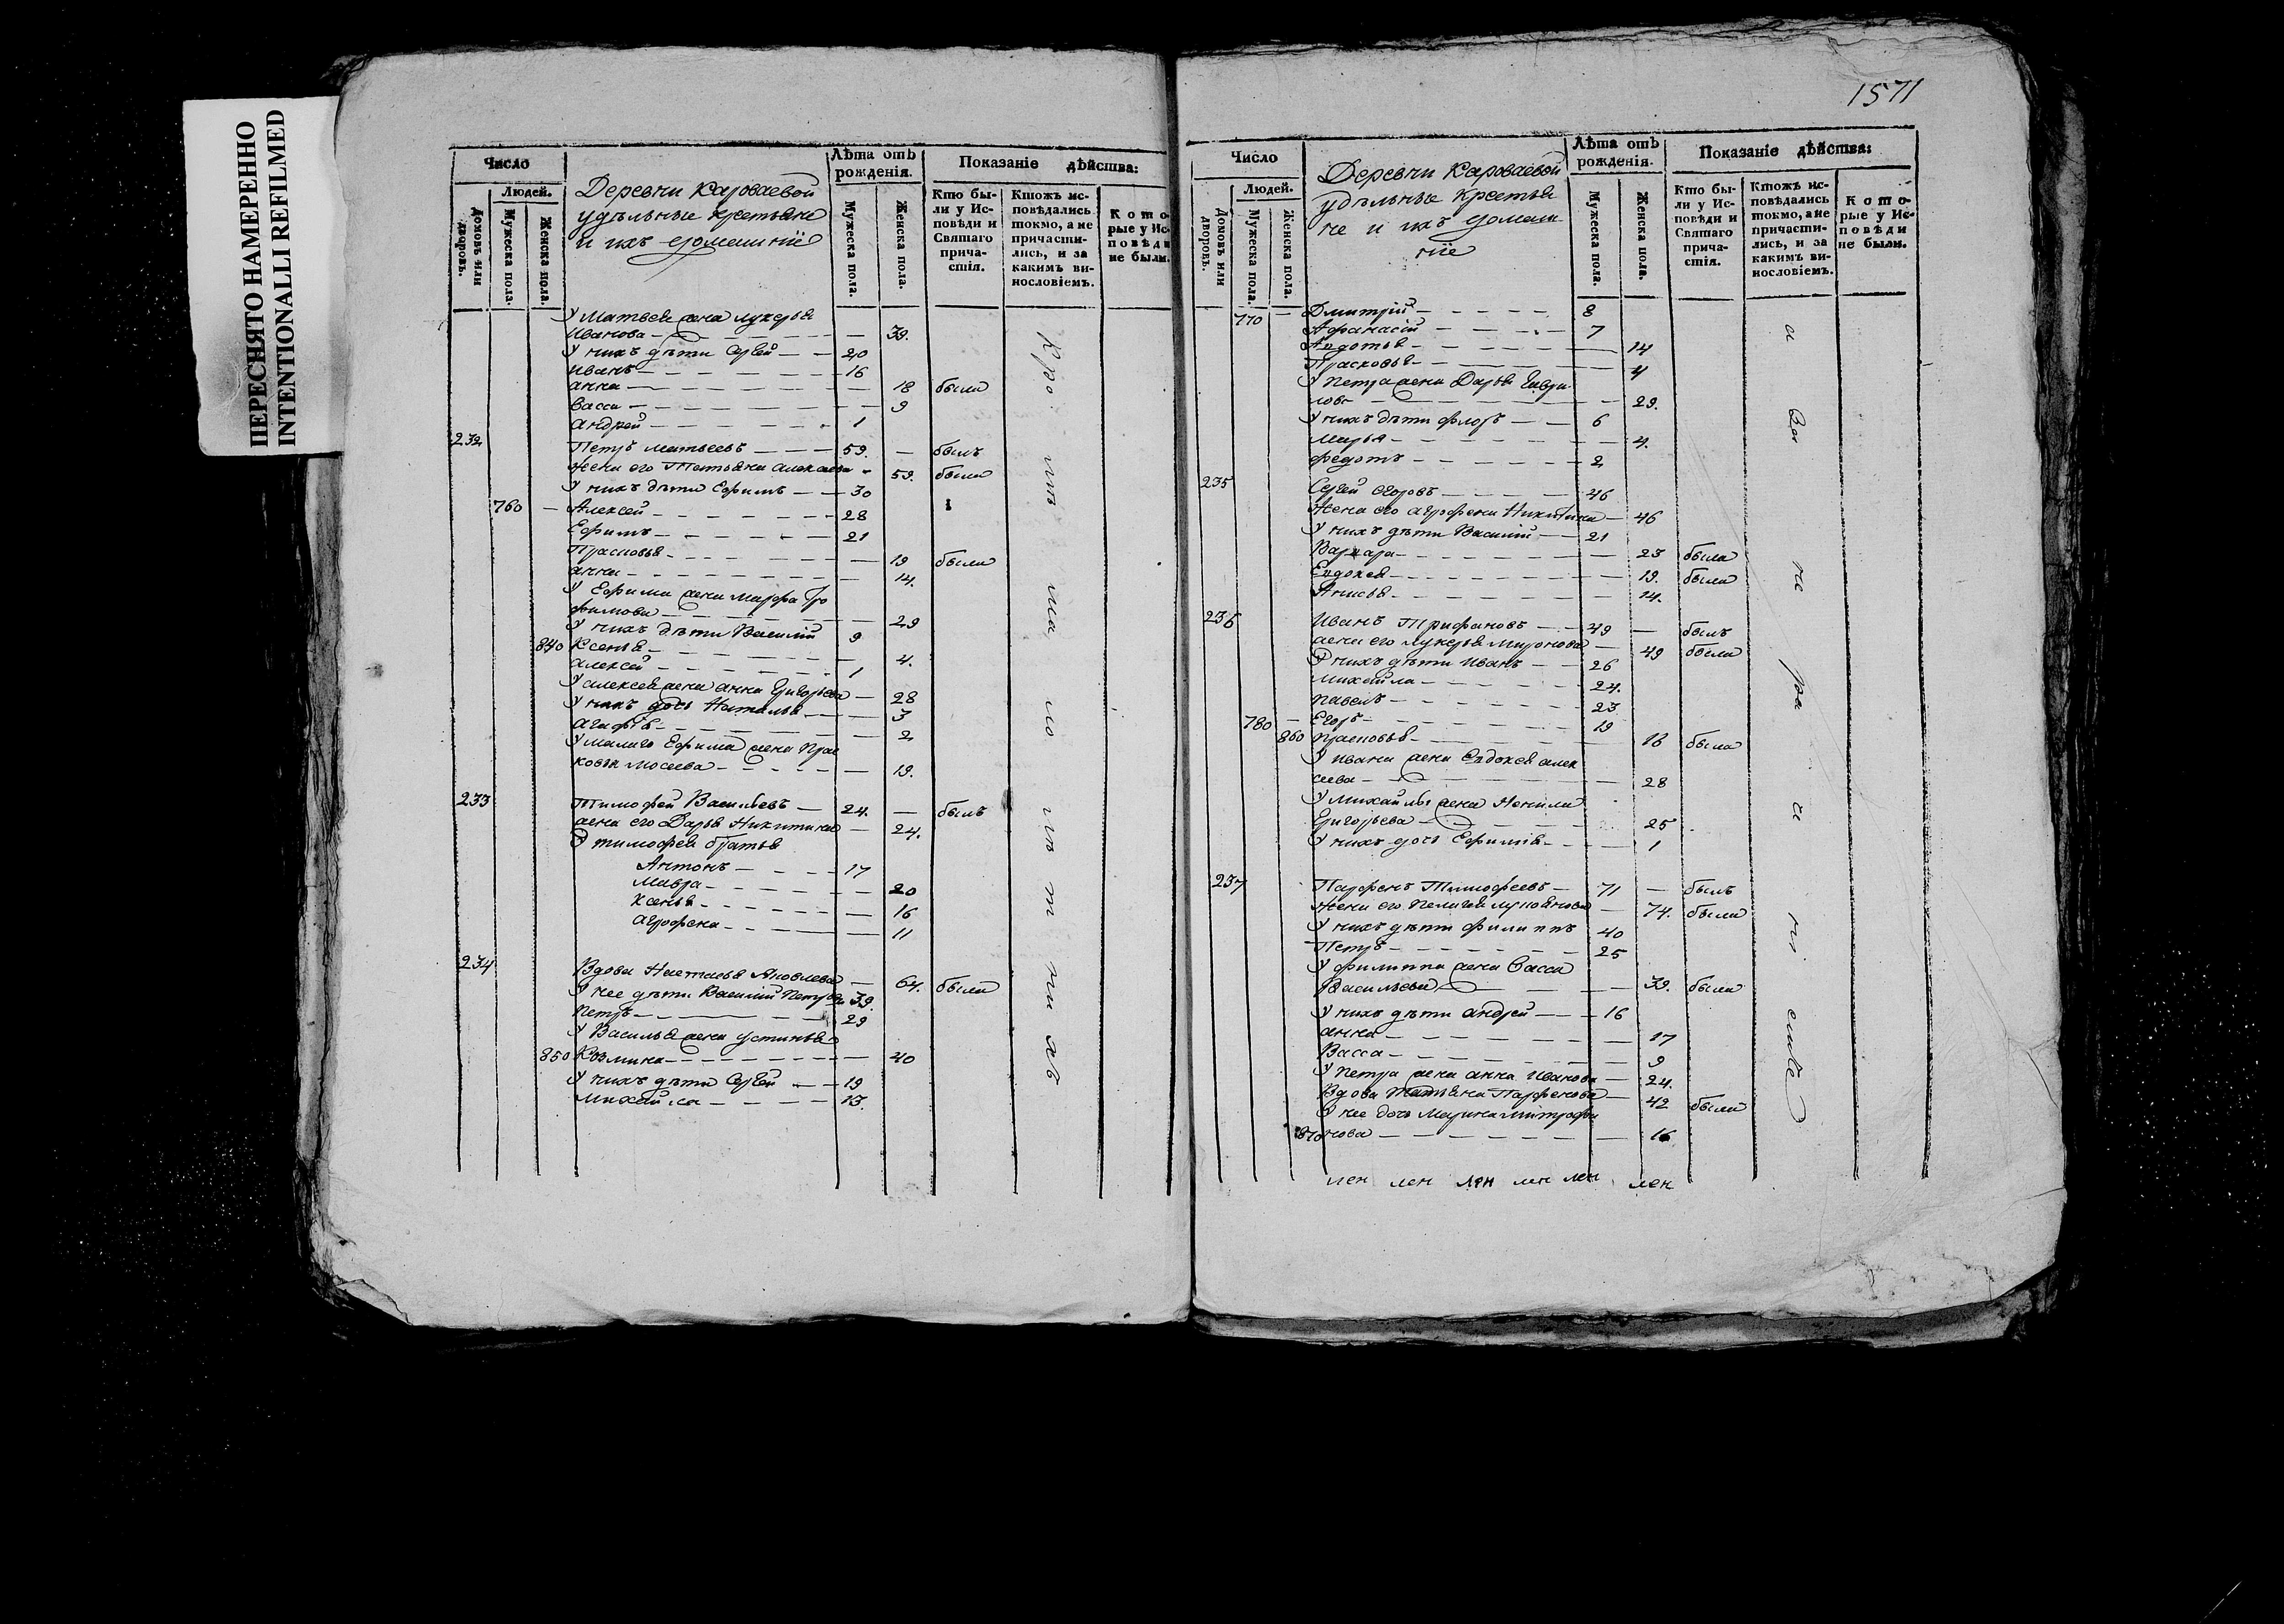 ПЕРЕСНЯТО НАМЕРЕННО
INTENTIONALLI REFILMED
Число
Людей.
Домовъ или дворовъ.
Мужеска пола.
Женска пола.
Деревни Кароваевой
удѣльные крестьяне
и ихъ домашніе
Лѣта отъ рожденія.
Мужеска пола.
Женска пола.
Показаніе дѣйства:
Кто бы-
ли у Ис-
повѣди и
Святаго
прича-
стія.
Ктожъ ис-
повѣдались
токмо, а не
причасти-
лись, и за
какимъ ви-
нословіемъ.
Кото-
рые у Ис-
повѣди
не были.
У Матвея жена Лукерья
Иванова 39.
У нихъ дѣти Сергей 20
Иванъ 16
Анна 18 была
Васса 9
Андрей 1
232 Петръ Матвеевъ 59. былъ
Жена его Татьяна Алексеева 59. была
У нихъ дѣти Ефимъ 30
760 Алексей 28
Ефимъ 21
Прасковья 19 была
Анна 14.
У Ефима жена Марфа Тро
фимова 29
У нихъ дѣти Василій 9
840 Ксенья 4.
Алексей 1
У Алексея жена Анна Григорьева 28
У нихъ дочь Наталья 3
Агафья 2
У малаго Ефима жена Прас
ковья Мосеева 19.
233 Тимофей Васильевъ 24. былъ
жена его Дарья Никитина 24.
У Тимофея братья
Антонъ 17
Мавра 20
Ксенья 16
Агрофена 11
234 Вдова Настасья Яковлева 64. была
У нее дѣти Василій Петровъ 39.
Петръ 29
У Василья жена Устинья
850 Козмина 40
У нихъ дѣти Сергей 19
Михайла 13.
1571
Число
Людей.
Домовъ или дворовъ.
Мужеска пола.
Женска пола.
Деревни Кароваевой
удѣльные крестья
не и ихъ домаш
ніе
Лѣта отъ рожденія.
Мужеска пола.
Женска пола.
Показаніе дѣйства:
Кто бы-
ли у Ис-
повѣди и
Святаго
прича-
стія.
Ктожъ ис-
повѣдались
токмо, а не
причасти-
лись, и за
какимъ ви-
нословіемъ.
Кото-
рые у Ис-
повѣди
не были.
770 Дмитрій 8
Афанасій 7
Авдотья 14
Прасковья 4
У Петра жена Дарья Гаври
лова 29.
У нихъ дѣти Флоръ 6
Марья 4.
Федотъ 2
235 Сергей Егоровъ 46
Жена его Агрофена Никитина 46
У нихъ дѣти Василій 21
Варвара 23 была
Евдокея 19. была
Анисья 14.
236 Иванъ Трифановъ 49 былъ
жена его Лукерья Миронова 49 была
У нихъ дѣти Иванъ 26
Михайла 24.
Павелъ 23
780 Егоръ 19
860 Прасковья 18 была
У Ивана жена Евдокея Алек
сеева 28
У Михайлы жена Ненила
Григорьева 25
У нихъ дочь Ефимія 1
237 Парфенъ Тимофеевъ 71 былъ
Жена его Пелагея Лупоянова 74. была
У нихъ дѣти Филиппъ 40
Петръ 25
У Филиппа жена Васса
Васильева 39. была
У нихъ дѣти Андрей 16
Анна 17
Васса 9
У Петра жена Анна Иванова 24.
Вдова Татьяна Парфенова 42 была
У нее дочь Марина Митрофа
870 нова 16